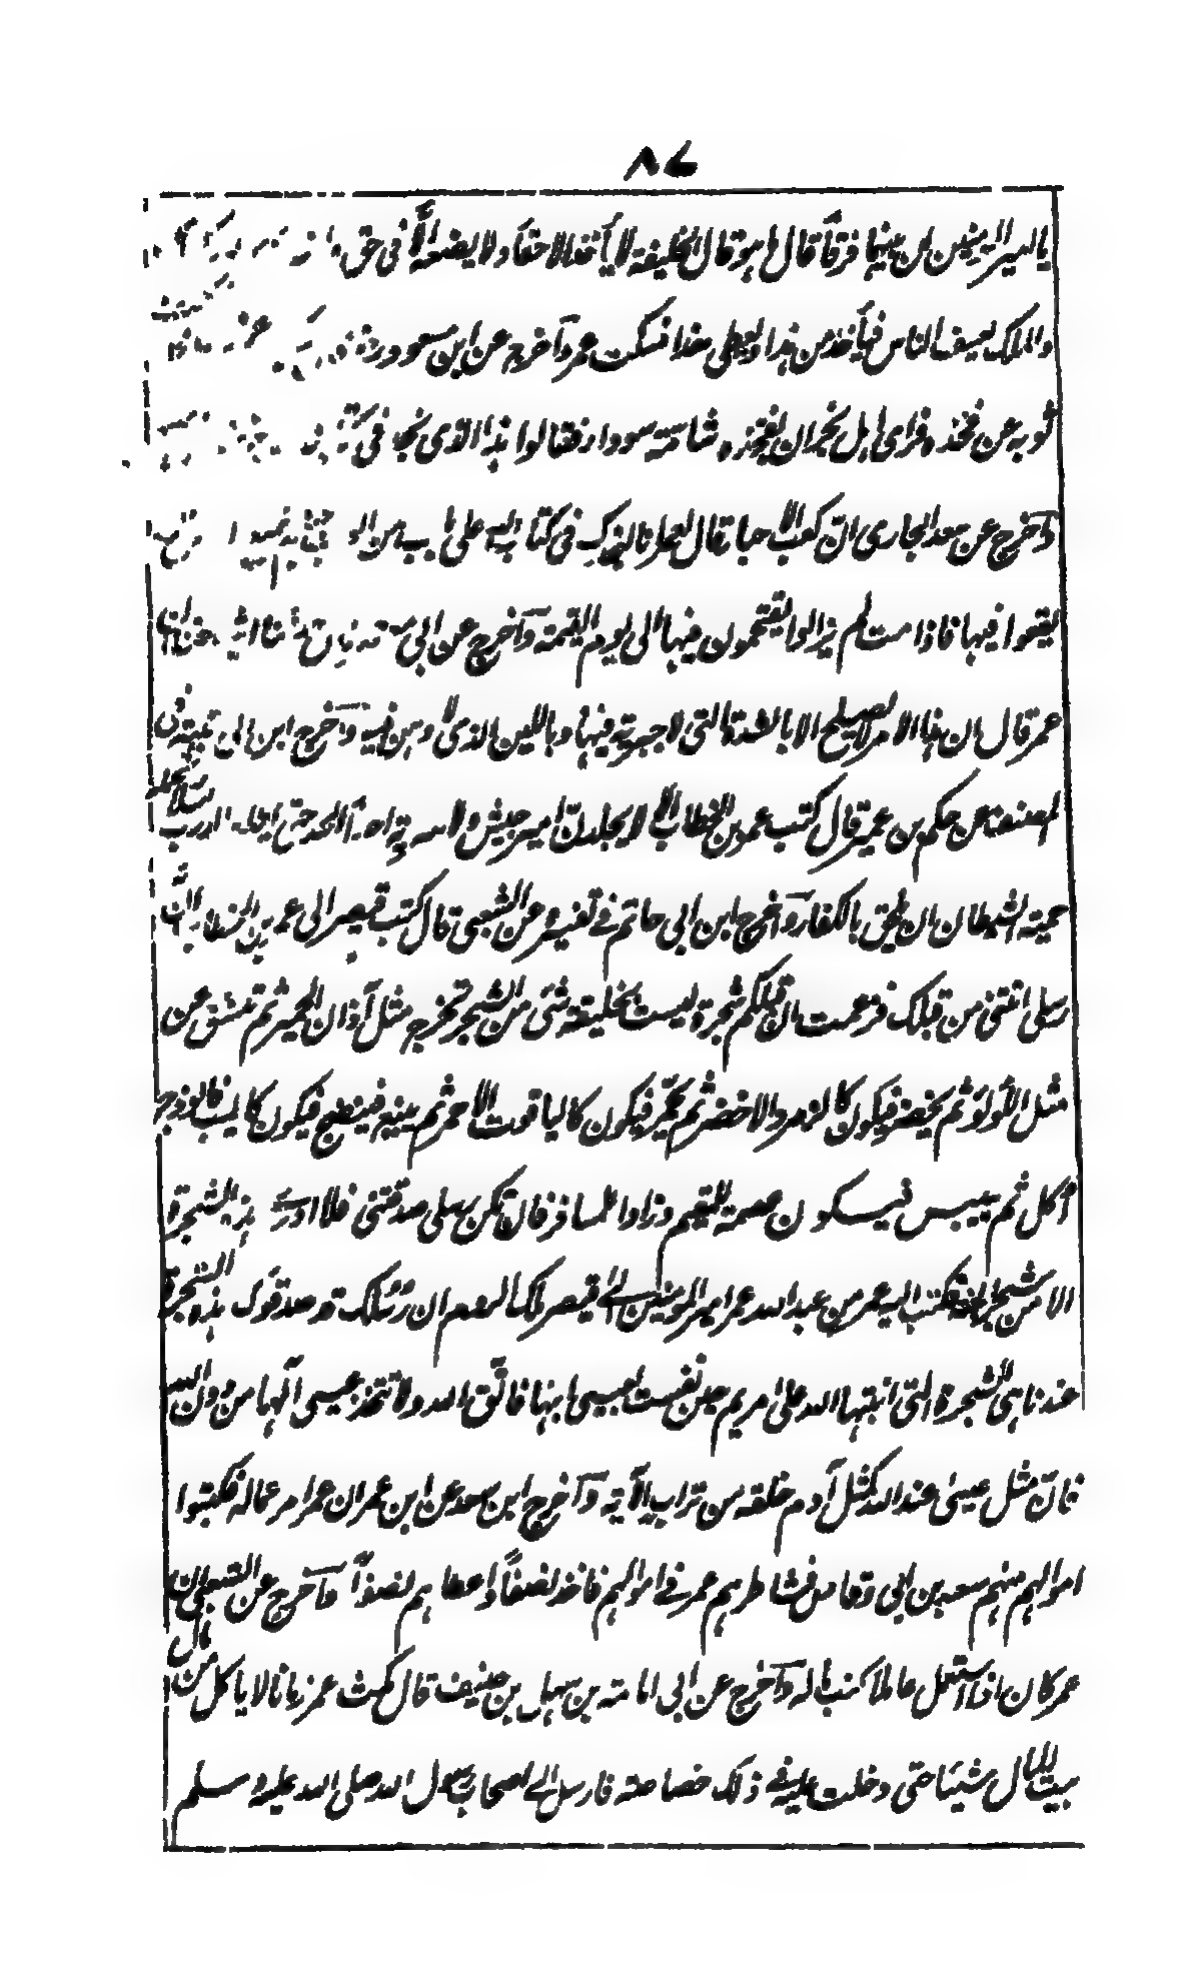 ٨٦
يا امير المؤمنين ان بينهما فرقاً قال ما هو قال الخليفة لا يأخذ الا حقاً ولا يضعه الّا فى حق
والملك يعسف الناس فيأخذ من هذا ويعطى هذا فسكت عمر وآخرج عن ابن مسعود
ثوبه عن فخذه فرأى اهل نجران بفخذه شامة سوداء فقالوا هذا الذى نجد فى
وآخرج عن سعد الجارى انّ كعب الاحبار قال لعمر انا لنجدك فى كتاب الله على باب من ابواب
يقعوا فيها فاذا مت لم يزالوا يقتحمون فيها الى يوم القيمة وآخرج عن ابى
عمر قال ان هذا الامر لا يصلح الا بالشدة التى لا جبرية فيها وباللين الذى لا وهن فيه وآخرج ابن ابى شيبة فى
المصنف عن حكم بن عمير قال كتب عمر بن الخطاب الا لا يجلدنّ امير جيش ولا سرية احداً الحد حتى
حمية الشيطان ان يلحق بالكفار وآخرج ابن ابى حاتم فى تفسيره عن الشعبى قال كتب قيصر الى عمر بن الخطاب انّ
رسلى اتتنى من قبلك فزعمت ان قبلكم شجرة ليست بخليقة شئ من الشجر تخرج مثل آذان الحمير ثم تشقق عن
مثل اللؤلؤ ثم يخضر فيكون كالزمرد الاخضر ثم يحمرّ فيكون كالياقوت الاحمر ثم يينع فينضج فيكون كاطيب فالوذج
أكل ثم ييبس فيكون عصمة للمقيم وزادا للمسافر فان تكن رسلى صدقتنى فلا ادرى هذه الشجرة
الا من شجر الجنة فكتب اليه عمر من عبد الله عمر امير المؤمنين الى قيصر ملك الروم ان رسلك قد صدقوك هذه الشجرة
عندنا هى الشجرة التى انبتها الله على مريم حين نفست بعيسى ابنها فاتّق الله ولا تتخذ عيسى آلها من دون الله
فانّ مثل عيسى عند الله كمثل آدم خلقه من تراب الآية وآخرج ابن سعد عن ابن عمر ان عمر امر عماله فكتبوا
اموالهم منهم سعد بن ابى وقاص فشاطرهم عمر فى اموالهم فاخذ نصفاً واعطاهم نصفاً وآخرج عن الشعبى ان
عمر كان اذا استعمل عاملا كتب ماله وآخرج عن ابى امامة بن سهل بن حنيف قال مكث عمر زمانا لا ياكل من مال
بيت المال شيئا حتى دخلت عليه فى ذلك خصاصة فارسل الى اصحاب رسول الله صلى الله عليه وسلم